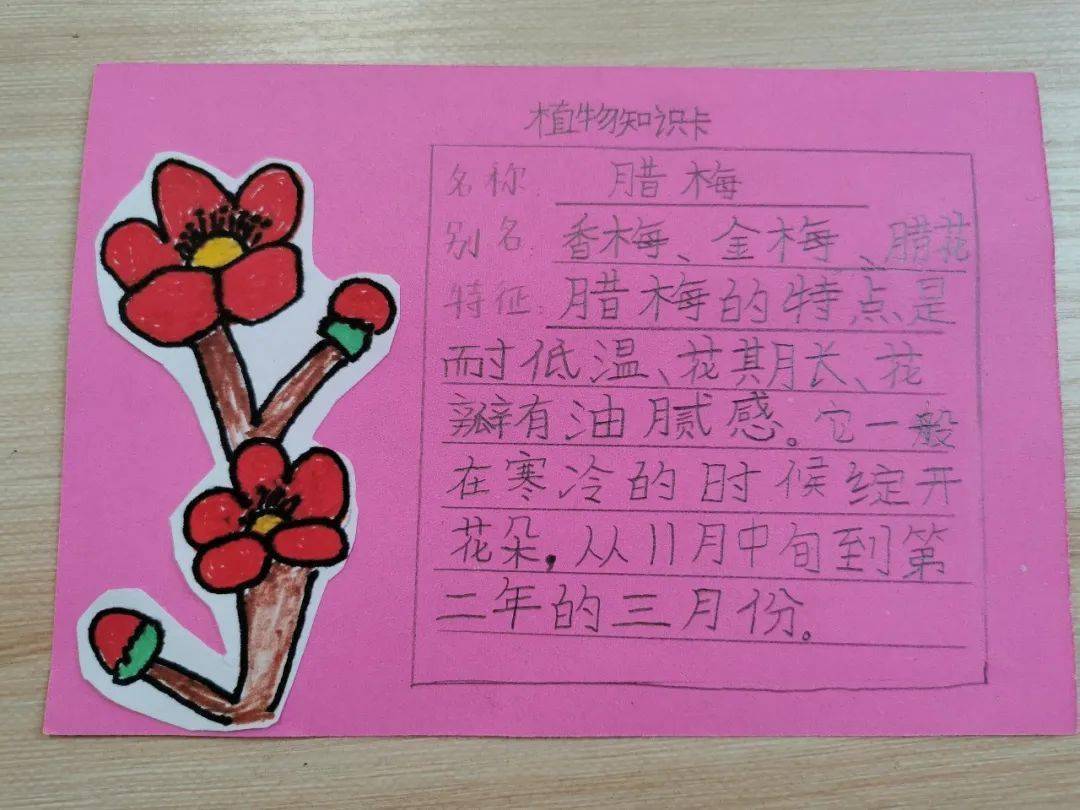 植物知识卡
名称 腊梅
别名: 香梅、金梅、腊花
特征: 腊梅的特点是
耐低温、花期长、花
瓣有油腻感。它一般
在寒冷的时候绽开
花朵,从11月中旬到第
二年的三月份。